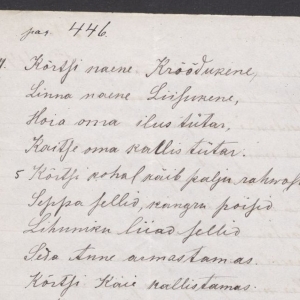 pag. 446.
4. Kõrtsi naene Kröödukene,
Linna naene Liisukene,
Hoia oma ilus tütar,
Kaitse oma kallis tütar.
5 Kõrtsi kohal käib palju rahvast
Seppa sellid, kangru poisid
Lihuniku liiad sellid
Seda Anne armastamas.
Kõrtsi Kaie kallistamas.